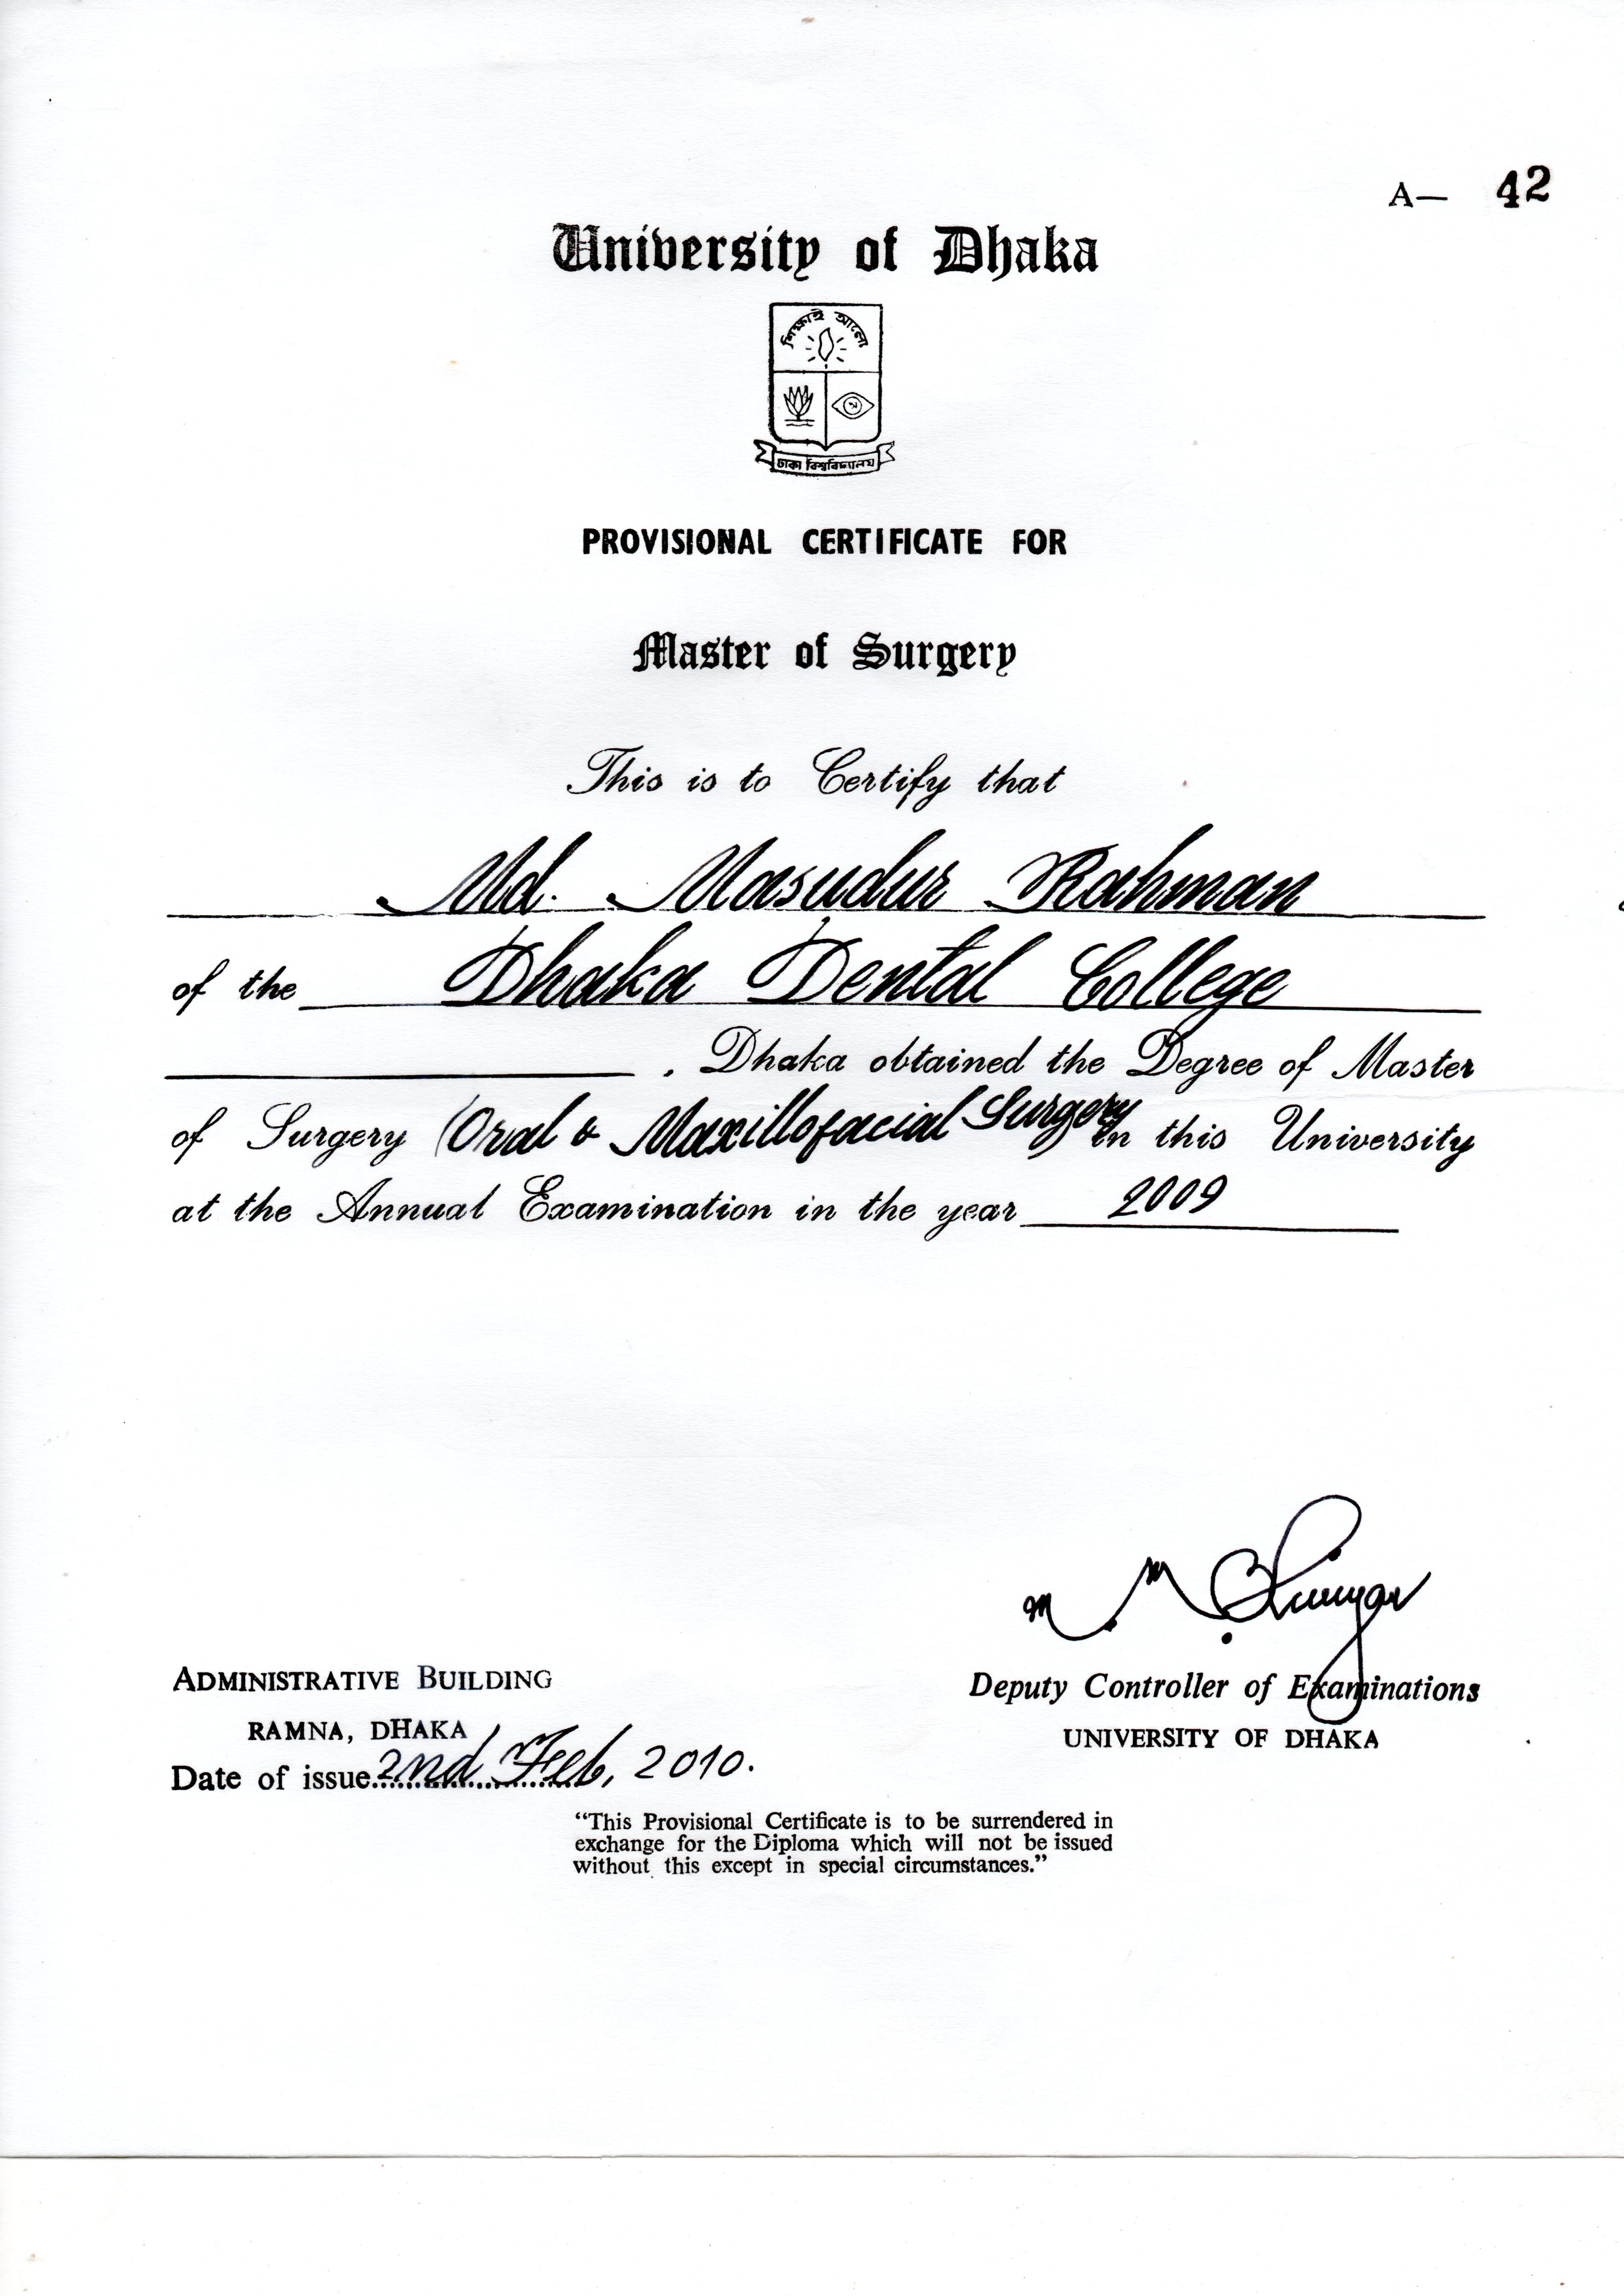 A— 42
University of Dhaka
শিক্ষাই আলো
ঢাকা বিশ্ববিদ্যালয়
PROVISIONAL CERTIFICATE FOR
Master of Surgery
This is to Certify that
Md. Masudur Rahman
of the Dhaka Dental College
. Dhaka obtained the Degree of Master
of Surgery (Oral & Maxillofacial Surgery) in this University
at the Annual Examination in the year 2009
ADMINISTRATIVE BUILDING
RAMNA, DHAKA
Date of issue 2nd Feb, 2010.
Deputy Controller of Examinations
UNIVERSITY OF DHAKA
“This Provisional Certificate is to be surrendered in
exchange for the Diploma which will not be issued
without this except in special circumstances.”